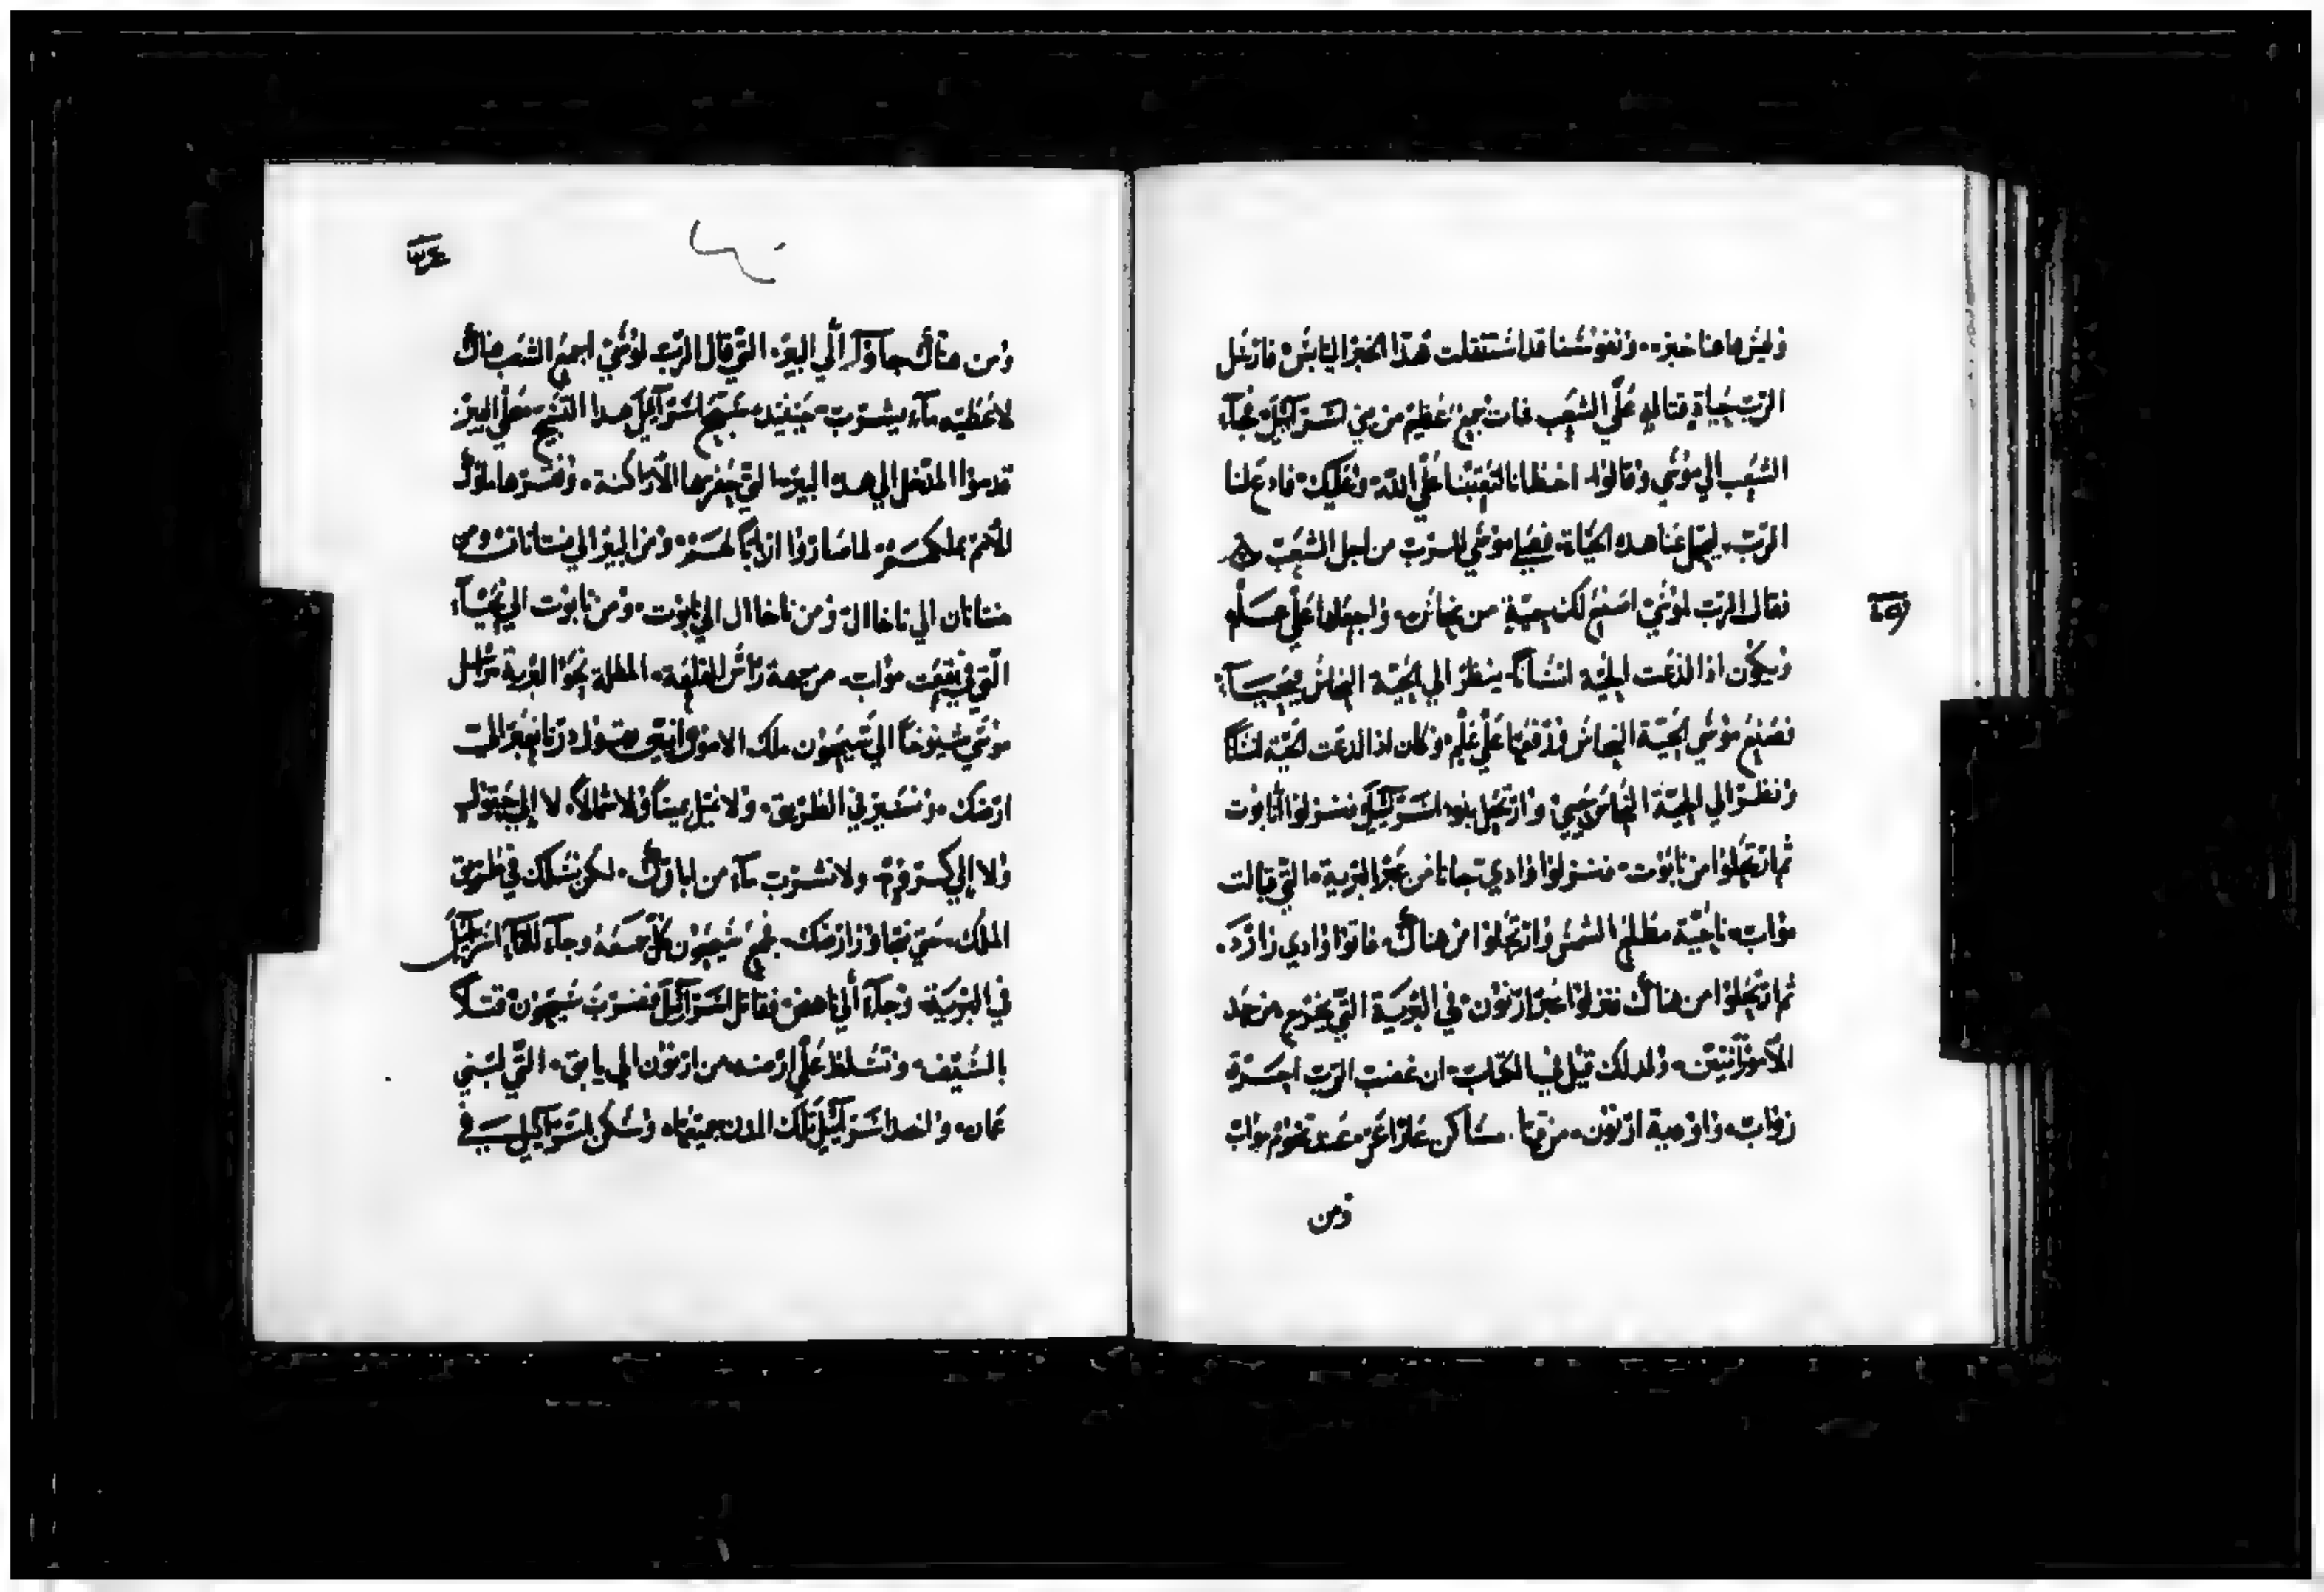 وليس هاهنا خبز. ونفوسنا قد استثقلت هذا الخبز اليابس فارسل
الرب حياة قتاله علي الشعب فمات جمع عظيم من بني اسرآئيل فجآء
الشعب الي موسي وقالوا اخطانا لتعتبنا علي الله وعليك فادع لنا
الرب ليحل عنا هذه الحياة فصلي موسي للرب من اجل الشعب
فقال الرب لموسي اصنع لك حية من نحاس واجعلها علي علم
ويكون اذا لذعت الحية انسانا ينظر الي الحية النحاس فيحييا
فصنع موسي الحية النحاس ورفعها علي علم وكان اذا لدعت الحية انسانا
ونظر الي الحية النحاس يحيي وارتحل بنو اسرآئيل فنزلوا اابوت
ثم ارتحلوا من نابوت فنزلوا وادي تجانا من عبر البرية التي قبالت
مواب ناحية مطلع الشمس وارتحلوا من هناك فاتوا وادي زارد
ثم ارتحلوا من هناك فنزلوا عبر ارنون في البرية التي يخرج من حد
الآمورانيين ولدلك قيل في الكتاب ان غضب الرب احرق
زواب واودية ارنون مرتها مساكن عار اعز عند تخوم مواب
ومن
ومن هناك جاوزا الي البير التي قال الرب لموسي اجمع الشعب هناك
لاعطيه مآء يشرب حينيد سبح اسرآئيل هدا التسبيح علي البير
قدموا المدخل الي هده البير التي حفرها الآراكنة وفسرها ملوك
الامم بملكهم لما صاروا اربابا لهم ومن البير الي منتانات ومن
منتانان الي ناخاال ومن ناخاال الي نابوت ومن نابوت الي نحيسآء
التي في بقعت مواب من جهة راس القلعة المطلة نحو البرية مرسل
موسي شيوخا الي سيحون ملك الاموارانيين يقول دنا نعبر الي
ارضك ونسير في الطريق ولا نميل يمينا ولا شمالا لا الي حقول
ولا الي كرم ولا نشرب مآء من ابارك لكن نسلك في طريق
الملك حتي نجاوز ارضك فجمع سيحون كل عسكره وجآء للقآ اسرآئيل
في البرية وجآء الي ناهص فقاتل اسرآئيل فضرب سيحون قتلا
بالسيف وتسلط علي ارضه من ارنون الي يابق التي لبني
عمان واخد اسرآئيل تلك المدن جميعها وسكن اسرآئيل في